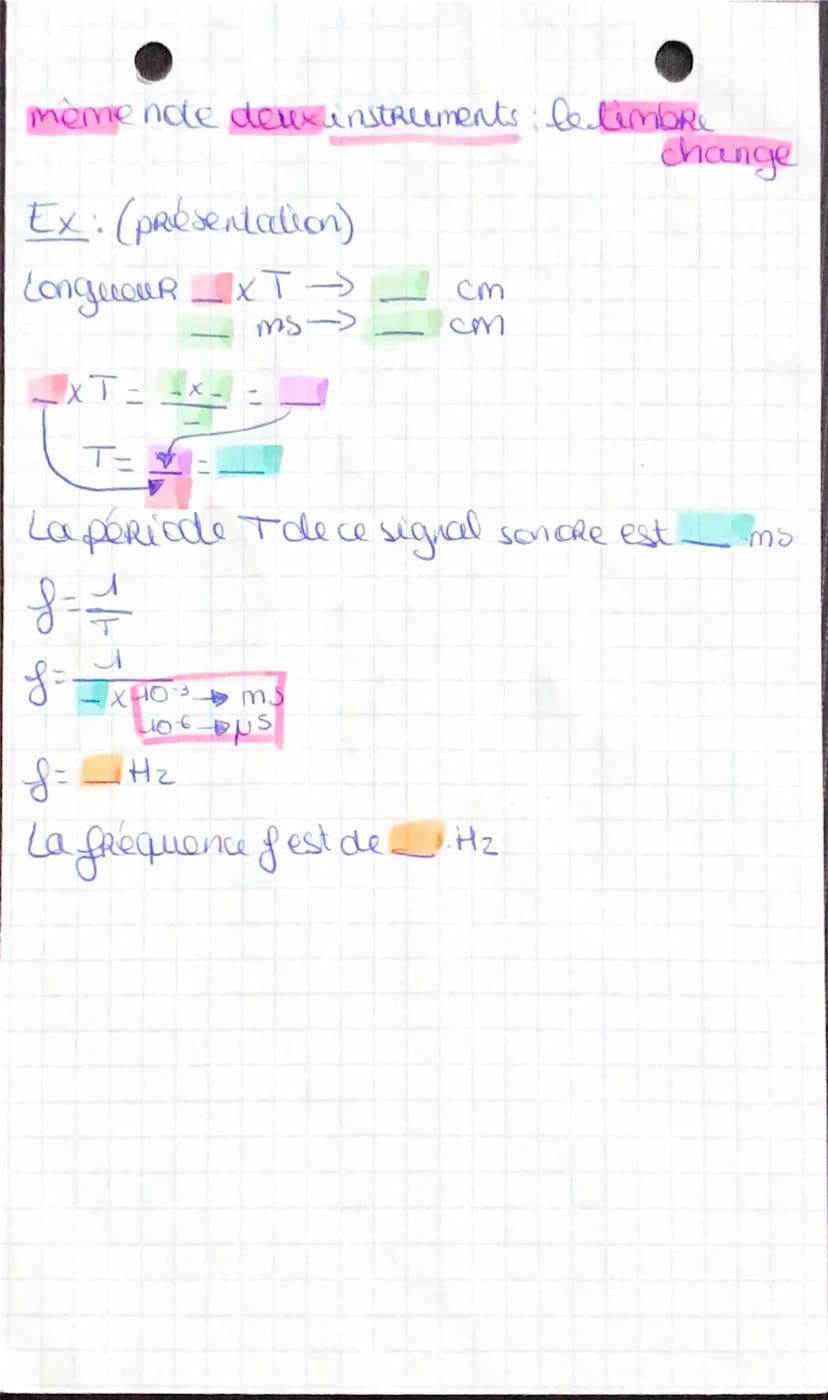 même note deux instruments : le timbre
change
Ex : (présentation)
Longueur _ x T → _ cm
_ ms → _ cm
_ x T = _ x _ / _ = _
T = _ / _ = _
La période T de ce signal sonore est _ ms
f = 1 / T
f = 1 / _ x 10^-3 → ms
10^-6 → µs
f = _ Hz
La fréquence f est de _. Hz